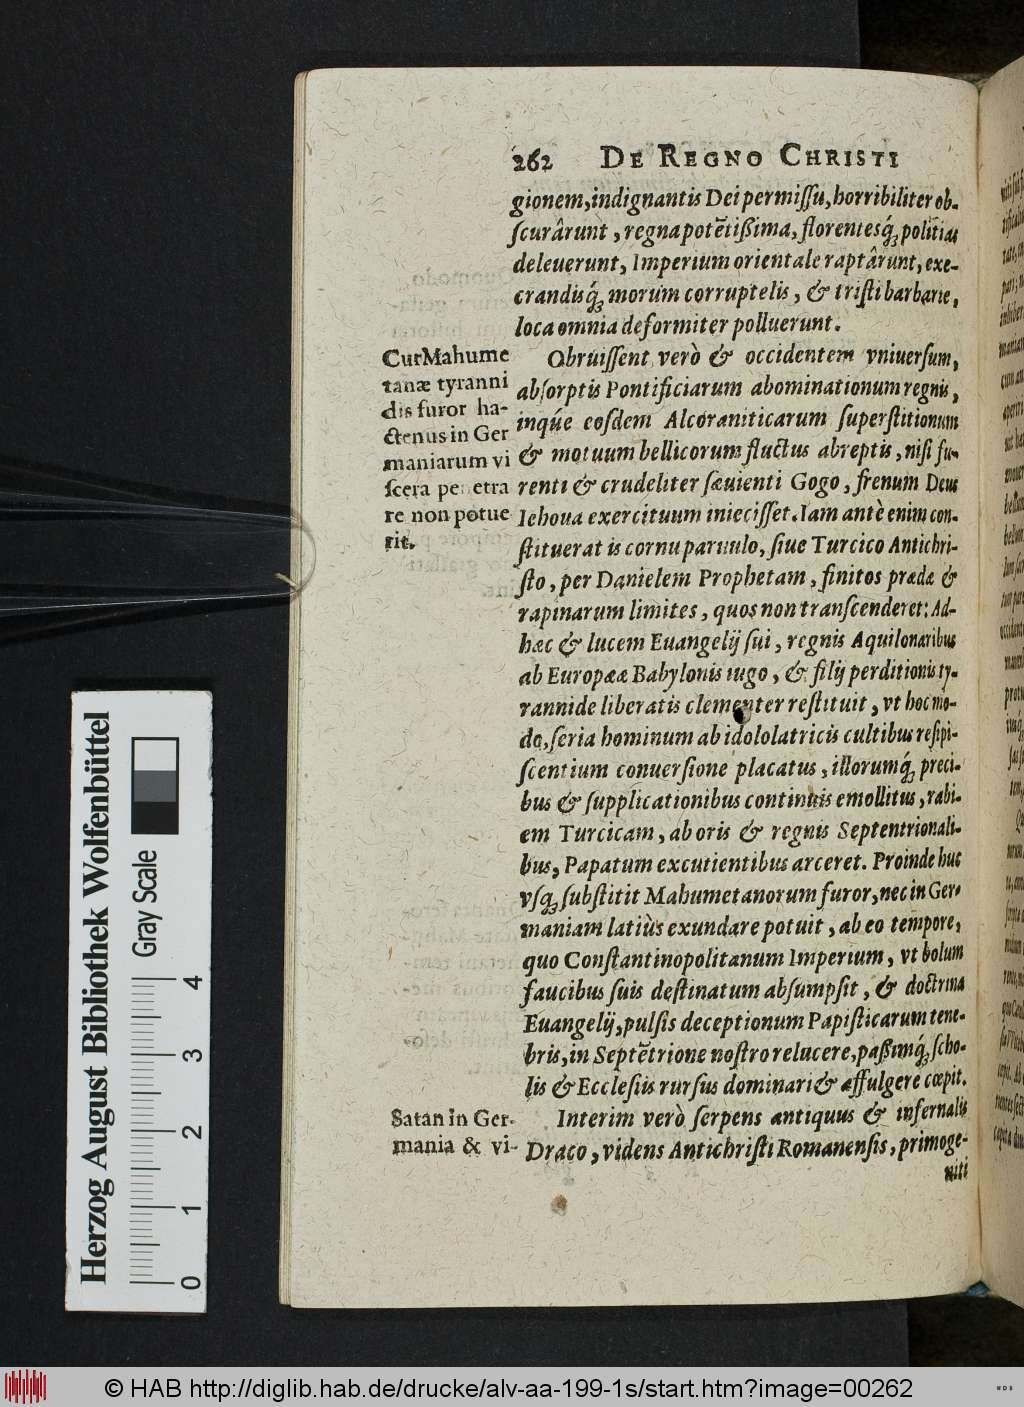 262 DE REGNO CHRISTI
gionem, indignantis Dei permissu, horribiliter ob-
scurârunt, regna potẽtißima, florentesq́ꝫ politias
deleuerunt, Imperium orientale raptârunt, exe-
crandisq́ꝫ morum corruptelis, & tristi barbarie,
loca omnia deformiter polluerunt.
Cur Mahume
tanæ tyranni
dis furor ha-
ctenus in Ger
maniarum vi
scera penetra
re non potue
rit.
Obruissent verò & occidentem vniuersum,
absorptis Pontificiarum abominationum regnis,
inq́ue eosdem Alcoraniticarum superstitionum
& motuum bellicorum fluctus abreptis, nisi fu-
renti & crudeliter sæuienti Gogo, frenum Deus
Iehoua exercituum iniecisset. Iam antè enim con-
stituerat is cornu paruulo, siue Turcico Antichri-
sto, per Danielem Prophetam, finitos prædæ &
rapinarum limites, quos non transcenderet: Ad-
hæc & lucem Euangelij sui, regnis Aquilonaribus
ab Europææ Babylonis iugo, & filij perditionis ty-
rannide liberatis clementer restituit, vt hoc mo-
do, seria hominum ab idololatricis cultibus resipi-
scentium conuersione placatus, illorumq́ꝫ preci-
bus & supplicationibus continuis emollitus, rabi-
em Turcicam, ab oris & regnis Septentrionali-
bus, Papatum excutientibus arceret. Proinde huc
vsq́ꝫ substitit Mahumetanorum furor, nec in Ger-
maniam latiùs exundare potuit, ab eo tempore,
quo Constantinopolitanum Imperium, vt bolum
faucibus suis destinatum absumpsit, & doctrina
Euangelij, pulsis deceptionum Papisticarum tene-
bris, in Septẽtrione nostro relucere, paßimq́ꝫ scho-
lis & Ecclesiis rursus dominari & affulgere cœpit.
Satan in Ger-
mania & vi-
Interim verò serpens antiquus & infernalis
Draco, videns Antichristi Romanensis, primoge-
niti
Herzog August Bibliothek Wolfenbüttel
Gray Scale
0 1 2 3 4
© HAB http://diglib.hab.de/drucke/alv-aa-199-1s/start.htm?image=00262